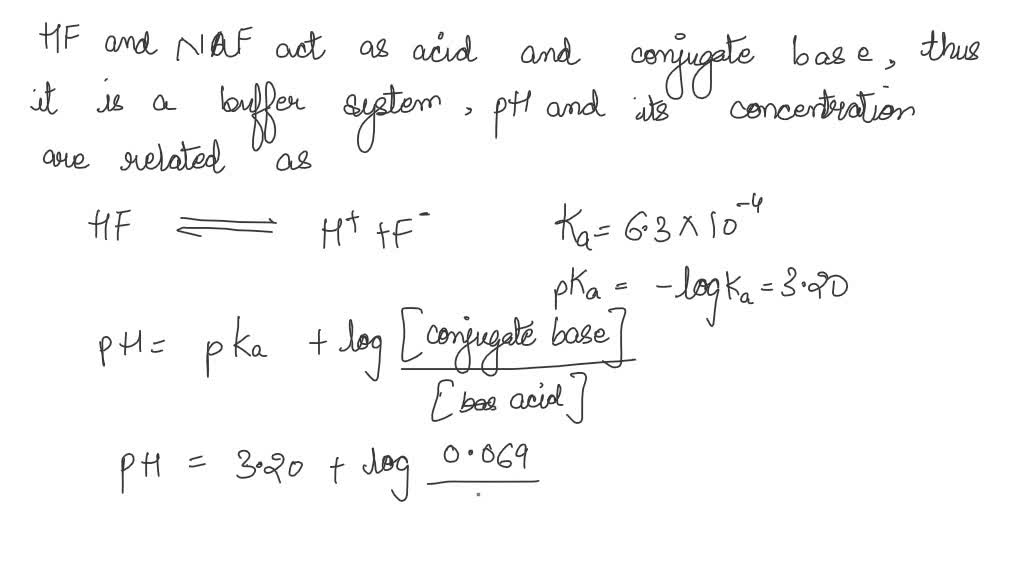 HF and NAF act as acid and conjugate base, thus
it is a buffer system, pH and its concentration
are related as
HF ⇌ H⁺ + F⁻
Ka = 6.3 × 10⁻⁴
pKa = -logKa = 3.20
pH = pKa + log [conjugate base] / [acid]
pH = 3.20 + log 0.069 /